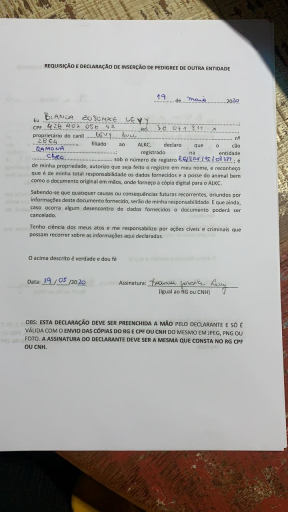 REQUISIÇÃO E DECLARAÇÃO DE INSERÇÃO DE PEDIGREE DE OUTRA ENTIDADE
19 de maio 2020
Eu BIANCA LEVY
CPF RG
proprietário do canil LEVY nº
filiado ao ALKC, declaro que o cão
RAMONA registrado na entidade
CBKC sob o número de registro , é
de minha propriedade, autorizo que seja feito o registro em meu nome, e reconheço
que é de minha total responsabilidade os dados fornecidos e a posse do animal bem
como o documento original em mãos, onde forneço a cópia digital para o ALKC.
Sabendo-se que quaisquer causas ou consequências futuras recorrentes, oriundos por
informações deste documento fornecido, serão de minha responsabilidade. E que ainda,
caso ocorra algum desencontro de dados fornecidos o documento poderá ser
cancelado.
Tenho ciência dos meus atos e me responsabilizo por ações cíveis e criminais que
possam recorrer sobre as informações aqui declaradas.
O acima descrito é verdade e dou fé
Data: 19/05/2020 Assinatura: Levy
(Igual ao RG ou CNH)
OBS: ESTA DECLARAÇÃO DEVE SER PREENCHIDA A MÃO PELO DECLARANTE E SÓ É
VÁLIDA COM O ENVIO DAS CÓPIAS DO RG E CPF OU CNH DO MESMO EM JPEG, PNG OU
FOTO. A ASSINATURA DO DECLARANTE DEVE SER A MESMA QUE CONSTA NO RG CPF
OU CNH.